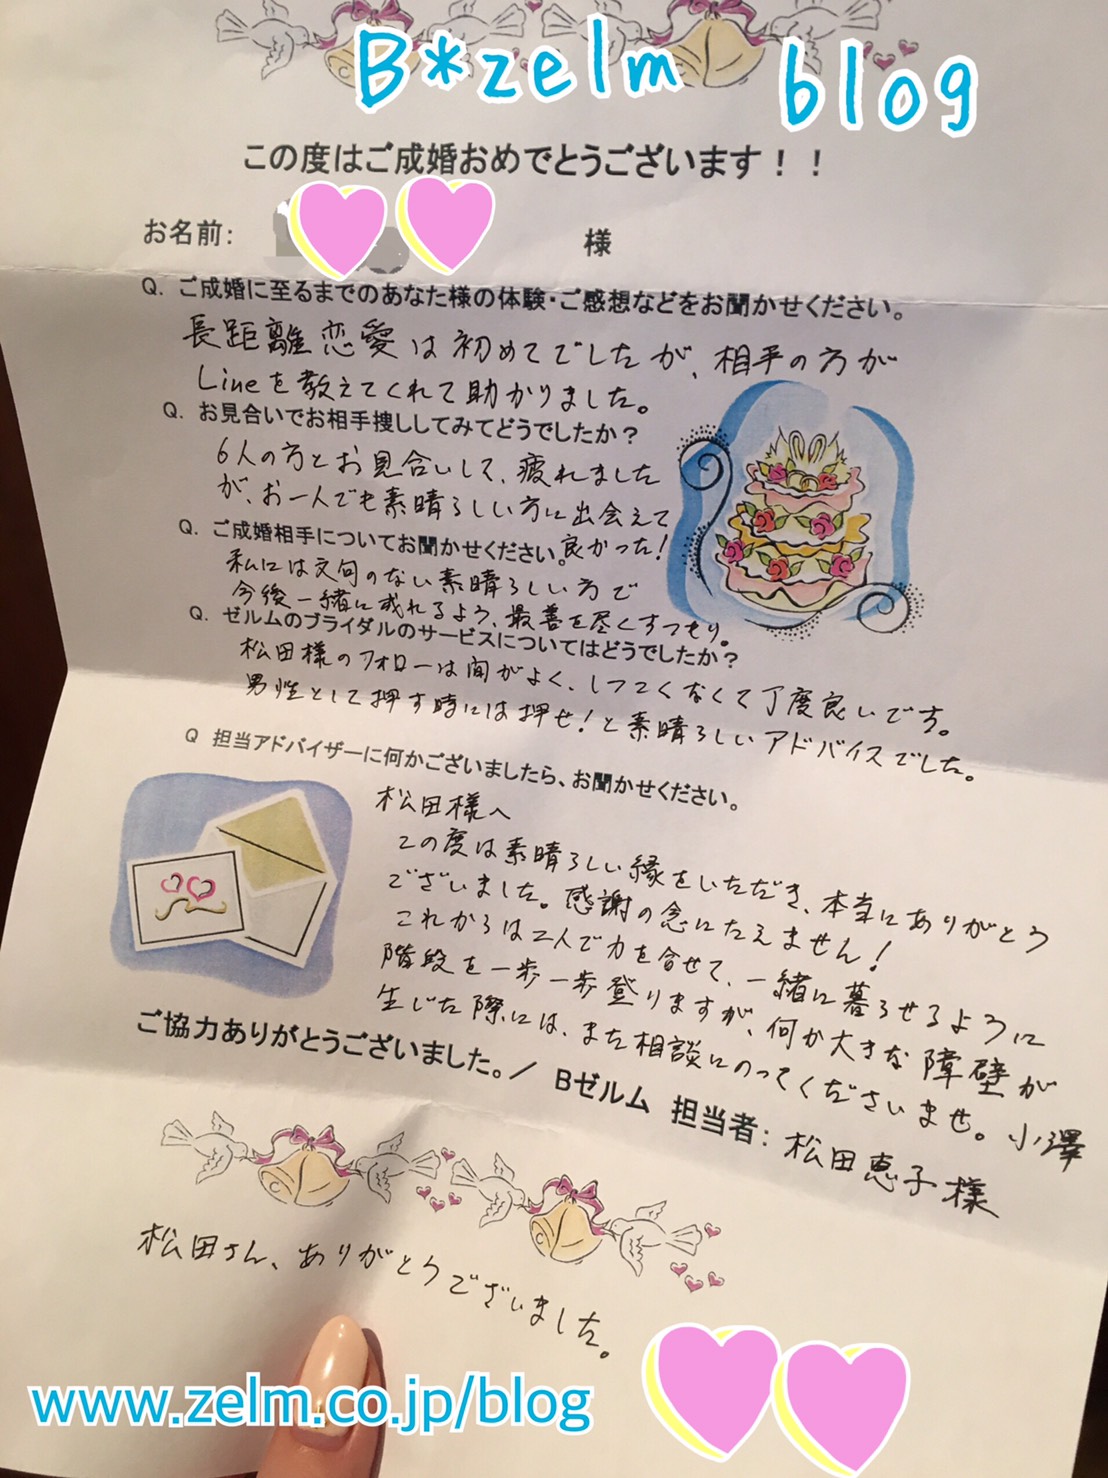 B*zelm blog
この度はご成婚おめでとうございます！！
お名前: 様
Q. ご成婚に至るまでのあなた様の体験・ご感想などをお聞かせください。
長距離恋愛は初めてでしたが、相手の方が
Lineを教えてくれて助かりました。
Q. お見合いでお相手捜ししてみてどうでしたか？
6人の方とお見合いして、疲れました
が、お一人でも素晴らしい方に出会えて
良かった！
Q. ご成婚相手についてお聞かせください。
私には文句のない素晴らしい方で
今後一緒に成れるよう、最善を尽くすつもり。
Q. ゼルムのブライダルのサービスについてはどうでしたか？
松田様のフォローは間がよく、しつこくなくて丁度良いです。
男性として押す時には押せ！と素晴らしいアドバイスでした。
Q 担当アドバイザーに何かございましたら、お聞かせください。
松田様へ
この度は素晴らしい縁をいただき、本当にありがとう
ございました。感謝の念にたえません！
これからは二人で力を合せて、一緒に暮らせるように
階段を一歩一歩登りますが、何か大きな障壁が
生じた際には、また相談にのってくださいませ。小澤
ご協力ありがとうございました。／ Bゼルム 担当者: 松田恵子様
松田さん、ありがとうございました。
www.zelm.co.jp/blog